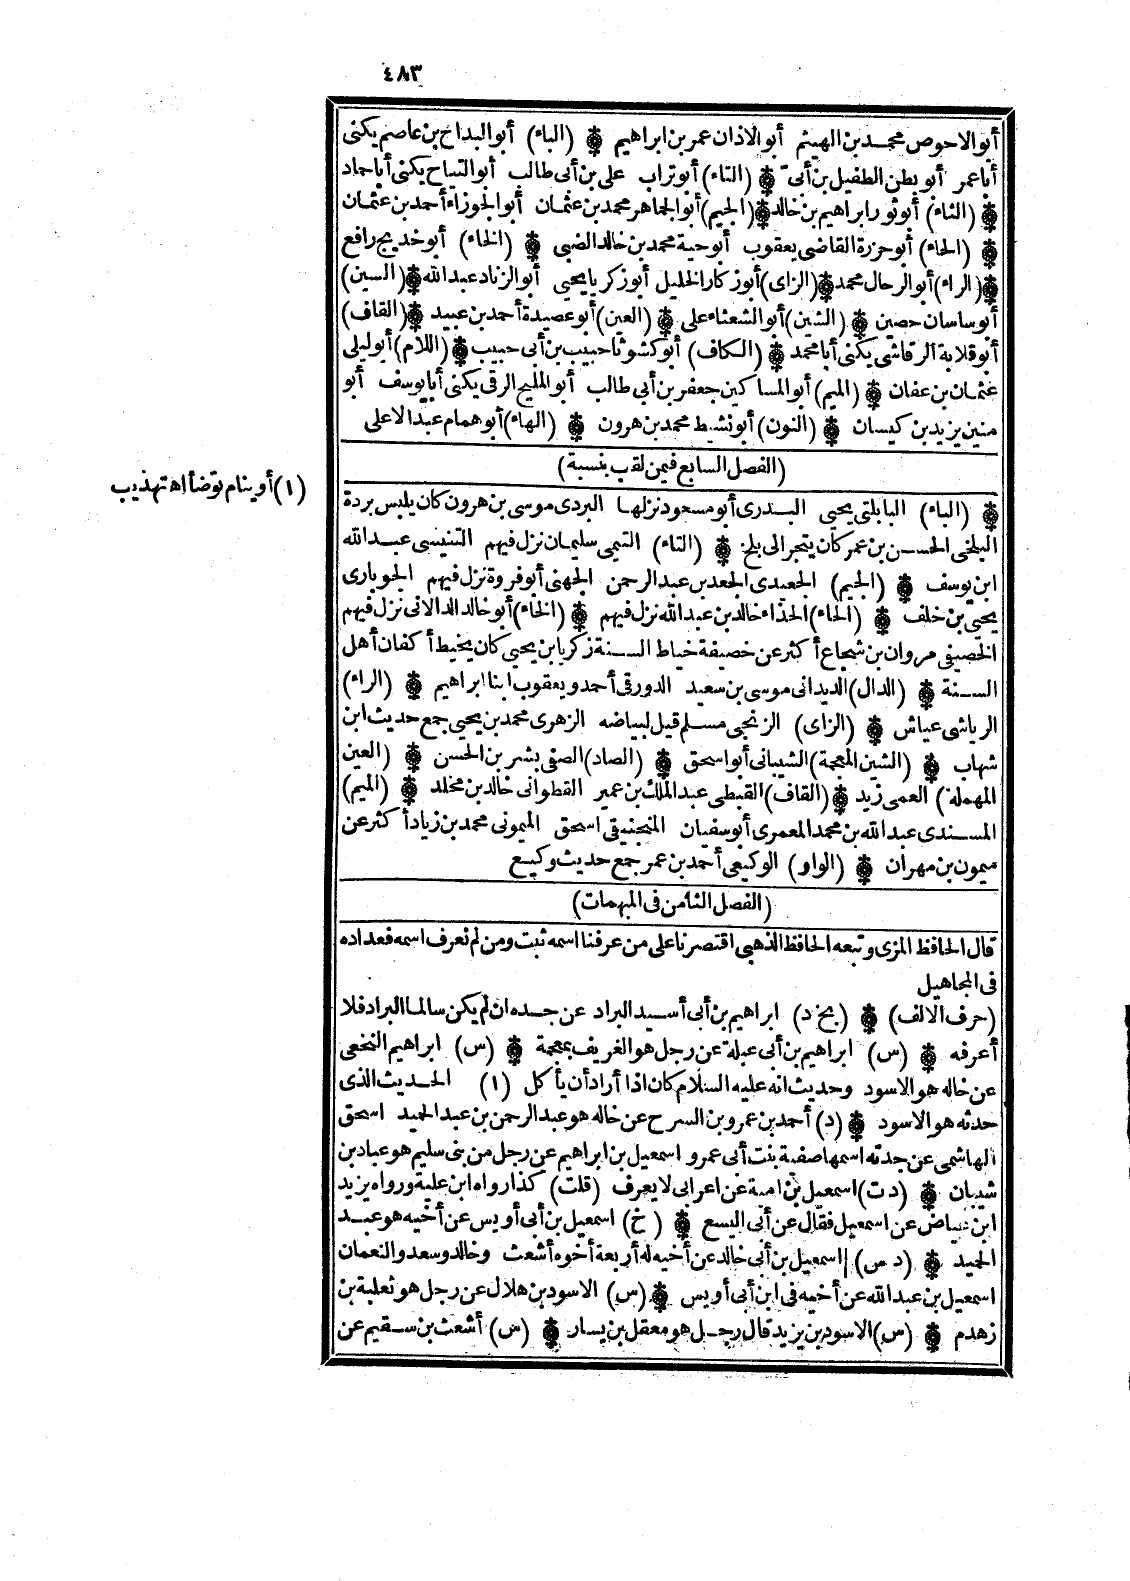 ٤٨٣
أبو الاحوص محمد بن الهيثم أبو الاذان عمر بن ابراهيم ۞ (الباء) أبو البداح بن عاصم يكنى
أبا عمر أبو بطن الطفيل بن أبى ۞ (التاء) أبو تراب على بن أبى طالب أبو التياح يكنى أبا حماد
۞ (الثاء) أبو ثور ابراهيم بن خالد ۞ (الجيم) أبو الجماهر محمد بن عثمان أبو الجوزاء أحمد بن عثمان
۞ (الحاء) أبو حزرة القاضى يعقوب أبو حية محمد بن خالد الضبى ۞ (الخاء) أبو خديج رافع
۞ (الراء) أبو الرحال محمد ۞ (الزاى) أبو زكار الخليل أبو زكريا يحيى أبو الزناد عبد الله ۞ (السين)
أبو ساسان حصين ۞ (الشين) أبو الشعثاء على ۞ (العين) أبو عصيدة أحمد بن عبيد ۞ (القاف)
أبو قلابة الرقاشى يكنى أبا محمد ۞ (الكاف) أبو كشوثا حبيب بن أبى حبيب ۞ (اللام) أبو ليلى
عثمان بن عفان ۞ (الميم) أبو المساكين جعفر بن أبى طالب أبو المليح الرقى يكنى أبا يوسف أبو
منين يزيد بن كيسان ۞ (النون) أبو نشيط محمد بن هرون ۞ (الهاء) أبو همام عبد الاعلى
(الفصل السابع فيمن لقب بنسبة)
(١) أو ينام توضأ اه تهذيب
۞ (الباء) البابلتى يحيى البدرى أبو مسعود نزلها البردى موسى بن هرون كان يلبس بردة
البلخى الحسن بن عمر كان يتجر الى بلخ ۞ (التاء) التيمى سليمان نزل فيهم التنيسى عبد الله
ابن يوسف ۞ (الجيم) الجعدى الجعد بن عبد الرحمن الجهنى أبو فروة نزل فيهم الجوبارى
يحيى بن خلف ۞ (الحاء) الحذاء خالد بن عبد الله نزل فيهم ۞ (الخاء) أبو خالد الدالانى نزل فيهم
الخصيفى مروان بن شجاع أكثر عن خصيفة خياط السنة زكريا بن يحيى كان يخيط أكفان أهل
السنة ۞ (الدال) الديدانى موسى بن سعيد الدورقى أحمد ويعقوب ابنا ابراهيم ۞ (الراء)
الرياشى عياش ۞ (الزاى) الزنجى مسلم قيل لبياضه الزهرى محمد بن يحيى جمع حديث ابن
شهاب ۞ (الشين المعجمة) الشيبانى أبو اسحق ۞ (الصاد) الصفى بشر بن الحسن ۞ (العين
المهملة) العمى زيد ۞ (القاف) القبطى عبد الملك بن عمير القطوانى خالد بن مخلد ۞ (الميم)
المسندى عبد الله بن محمد المعمرى أبو سفيان المنجنيقى اسحق الميمونى محمد بن زياد أكثر عن
ميمون بن مهران ۞ (الواو) الوكيعى أحمد بن عمر جمع حديث وكيع
(الفصل الثامن فى المبهمات)
قال الحافظ المزى وتبعه الحافظ الذهبى اقتصرنا على من عرفنا اسمه ثبت ومن لم نعرف اسمه فعداده
فى المجاهيل
(حرف الالف) ۞ (بخ د) ابراهيم بن أبى أسيد البراد عن جده ان لم يكن سالما البراد فلا
أعرفه ۞ (س) ابراهيم بن أبى عبلة عن رجل هو الغريف بمعجمة ۞ (س) ابراهيم النخعى
عن خاله هو الاسود وحديث انه عليه السلام كان اذا أراد أن يأكل (١) الحديث الذى
حدثه هو الاسود ۞ (د) أحمد بن عمرو بن السرح عن خاله هو عبد الرحمن بن عبد الحميد اسحق
الهاشمى عن جدته اسمها صفية بنت أبى عمرو اسمعيل بن ابراهيم عن رجل من بنى سليم هو عباد بن
شيبان ۞ (د ت) اسمعيل بن امية عن اعرابى لا يعرف (قلت) كذا رواه ابن علية ورواه يزيد
ابن عياض عن اسمعيل فقال عن أبى اليسع ۞ (خ) اسمعيل بن أبى أويس عن أخيه هو عبد
الحميد ۞ (د س) اسمعيل بن أبى خالد عن أخيه له أربعة أخوه أشعث وخالد وسعد والنعمان
اسمعيل بن عبد الله عن أخيه فى ابن أبى أويس ۞ (س) الاسود بن هلال عن رجل هو ثعلبة بن
زهدم ۞ (س) الاسود بن يزيد قال رجل هو معقل بن يسار ۞ (س) أشعث بن سقيم عن